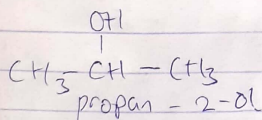 OH
|
CH3-CH-CH3
propan-2-ol